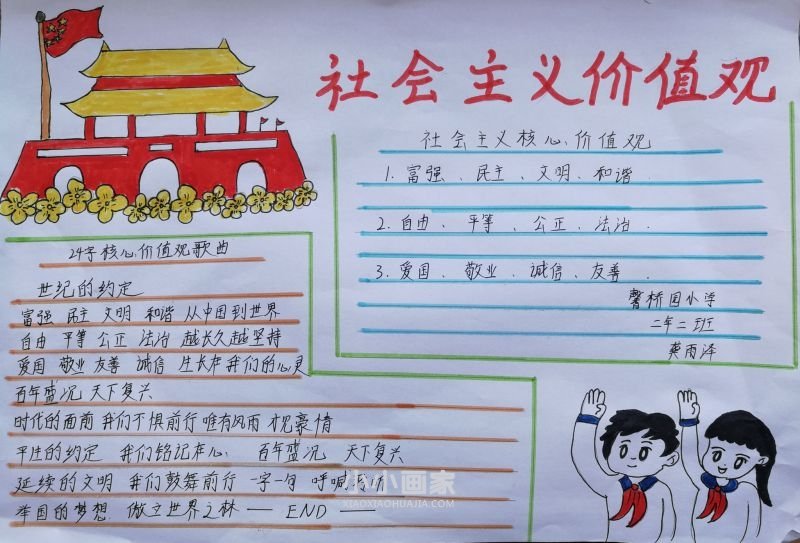 社会主义价值观
社会主义核心价值观
1.富强、民主、文明、和谐.
2.自由、平等、公正、法治.
3.爱国、敬业、诚信、友善.
馨桥园小学
二年二班
龚雨泽
24字核心价值观歌曲
世纪的约定
富强 民主 文明 和谐 从中国到世界
自由 平等 公正 法治 越长久越坚持
爱国 敬业 友善 诚信 生长在我们的心灵
百年盛况 天下复兴
时代的面前 我们不惧前行 唯有风雨 才见豪情
平生的约定 我们铭记在心: 百年盛况 天下复兴
延续的文明 我们鼓舞前行 一字一句 呼喊
举国的梦想 傲立世界之林 — END —
小小画家
XIAOXIAOHUAJIA.COM